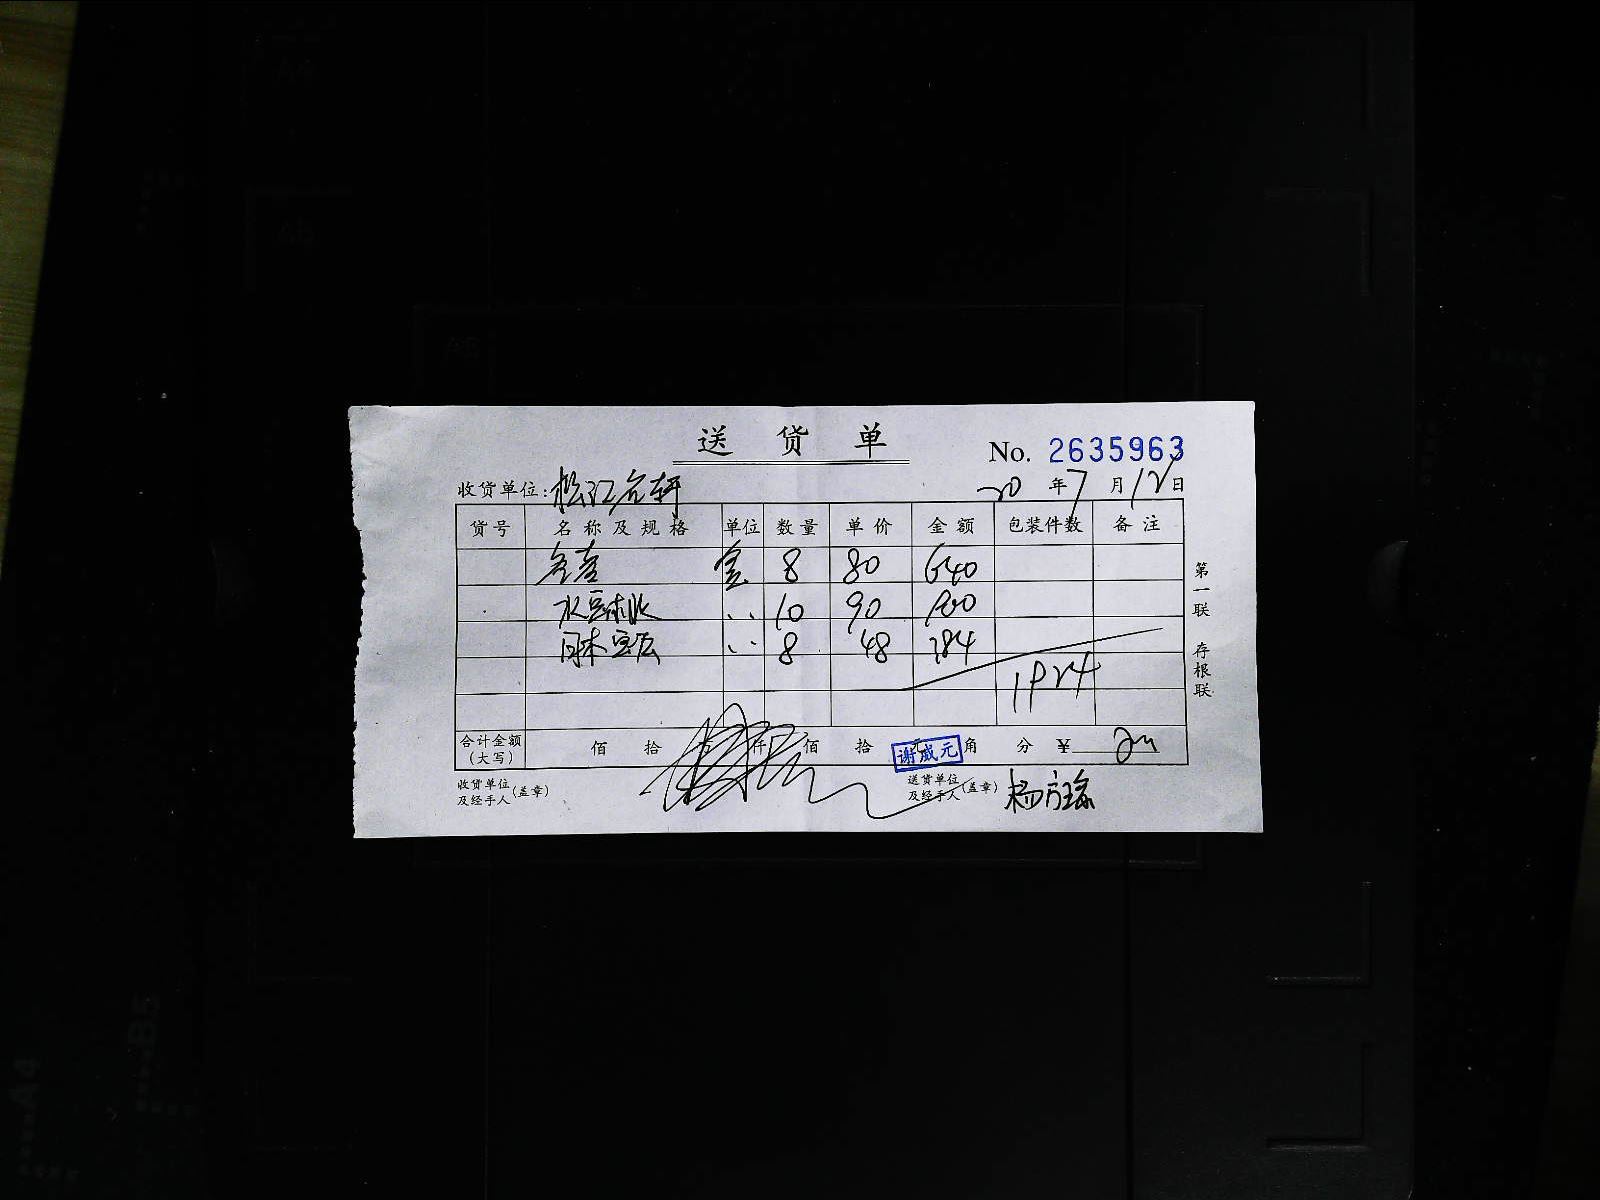 送货单
No. 2635963
收货单位: 松江名轩 20年7月12日
货号 名称及规格 单位 数量 单价 金额 包装件数 备注
8 80 640
10 90 900
日本豆 8 48 384
1924
合计金额(大写) 佰 拾 万 仟 佰 拾 元 角 分 ¥
谢威元
收货单位及经手人(盖章) 送货单位及经手人(盖章) 杨
第一联 存根联
A4
A5
B5
A4